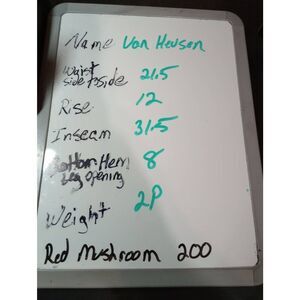 Name Van Heusen
Waist
side to side 21.5
Rise 12
Inseam 31.5
Bottom Hem 8
Leg Opening
Weight 2P
Red Mushroom 200